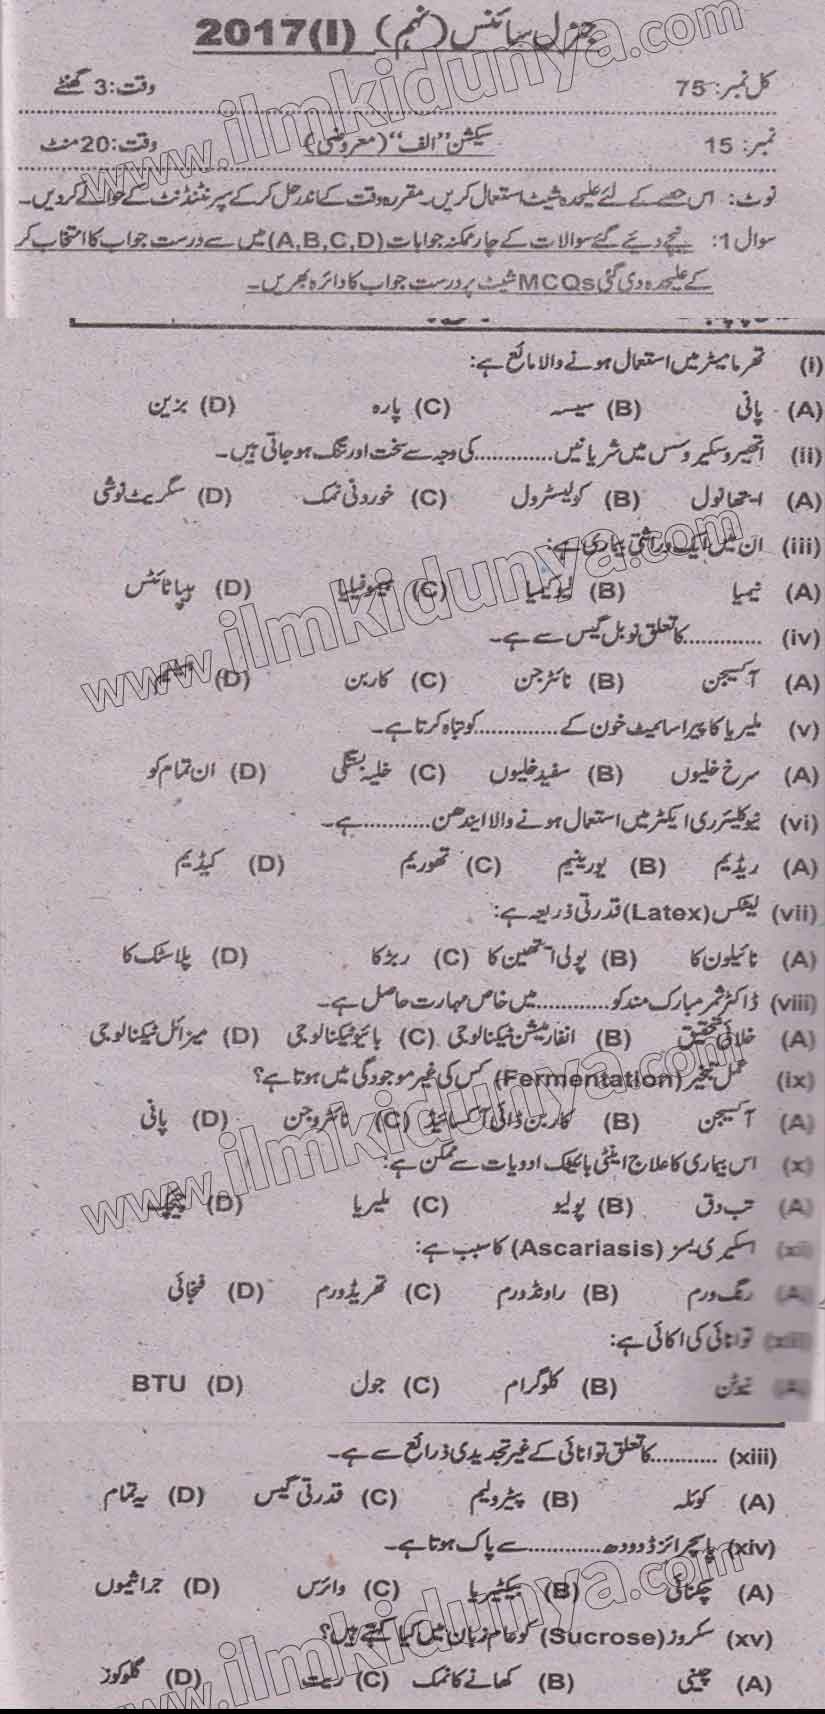 جنرل سائنس (نہم) 2017(I)
کل نمبر: 75 وقت: 3 گھنٹے
نمبر: 15 سیکشن "الف" (معروضی) وقت: 20 منٹ
نوٹ: اس حصے کے لئے علیحدہ شیٹ استعمال کریں۔ مقررہ وقت کے اندر حل کر کے سپرنٹنڈنٹ کے حوالے کر دیں۔
سوال 1: نیچے دیئے گئے سوالات کے چار ممکنہ جوابات (A,B,C,D) میں سے درست جواب کا انتخاب کر
کے علیحدہ دی گئی MCQs شیٹ پر درست جواب کا دائرہ بھریں۔
(i) تھرمامیٹر میں استعمال ہونے والا مائع ہے:
(A) پانی (B) سیسہ (C) پارہ (D) بزین
(ii) اتھیروسکیروسس میں شریانیں ............کی وجہ سے سخت اور تنگ ہو جاتی ہیں۔
(A) ایتھانول (B) کولیسٹرول (C) خوردنی نمک (D) سگریٹ نوشی
(iii) ان میں ایک وراثتی بیماری ہے:
(A) نیمیا (B) لیوکیمیا (C) ہیموفیلیا (D) ہیپاٹائٹس
(iv) ............کا تعلق نوبل گیس سے ہے۔
(A) آکسیجن (B) نائٹرجن (C) کاربن (D)
(v) ملیریا کا پیراسائیٹ خون کے ............کو تباہ کرتا ہے۔
(A) سرخ خلیوں (B) سفید خلیوں (C) خلیہ بستگی (D) ان تمام کو
(vi) نیوکلیئر ری ایکٹر میں استعمال ہونے والا ایندھن..........ہے۔
(A) ریڈیم (B) یورینیم (C) تھوریم (D) کیڈیم
(vii) لیٹکس (Latex) قدرتی ذریعہ ہے:
(A) نائیلون کا (B) پولی ایتھین کا (C) ربڑ کا (D) پلاسٹک کا
(viii) ڈاکٹر ثمر مبارک مند کو ............میں خاص مہارت حاصل ہے۔
(A) خلائی تحقیق (B) انفارمیشن ٹیکنالوجی (C) بائیو ٹیکنالوجی (D) میزائل ٹیکنالوجی
(ix) عمل تخمیر (Fermentation) کس کی غیر موجودگی میں ہوتا ہے؟
(A) آکسیجن (B) کاربن ڈائی آکسائیڈ (C) نائٹروجن (D) پانی
(x) اس بیماری کا علاج اینٹی بائیٹک ادویات سے ممکن ہے:
(A) تب دق (B) پولیو (C) ملیریا (D) چیچک
اسکیری یسز (Ascariasis) کا سبب ہے:
(A) رنگ ورم (B) راونڈورم (C) تھریڈورم (D) فنجائی
توانائی کی اکائی ہے:
(A) نیوٹن (B) کلوگرام (C) جول (D) BTU
(xiii) ...........کا تعلق توانائی کے غیر تجدیدی ذرائع سے ہے۔
(A) کوئلہ (B) پیٹرولیم (C) قدرتی گیس (D) یہ تمام
(xiv) پاسچرائزڈ دودھ............سے پاک ہوتا ہے۔
(A) چکنائی (B) بیکٹیریا (C) وائرس (D) جراثیموں
(xv) سکروز (Sucrose) کو عام زبان میں کیا کہتے ہیں؟
(A) چینی (B) کھانے کا نمک (C) ریت (D) گلوکوز
www.ilmkidunya.com
www.ilmkidunya.com
www.ilmkidunya.com
www.ilmkidunya.com